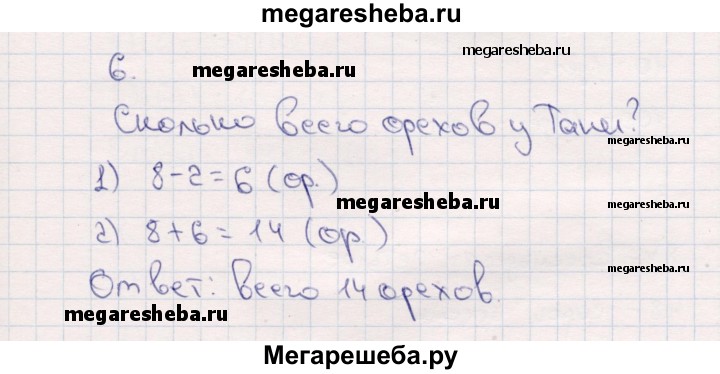 megaresheba.ru
megaresheba.ru
6.
megaresheba.ru
Сколько всего орехов у Тани?
megaresheba.ru
1) 8-2=6 (ор.)
megaresheba.ru
2) 8+6=14 (ор.)
megaresheba.ru
Ответ: всего 14 орехов.
megaresheba.ru
Мегарешеба.ру